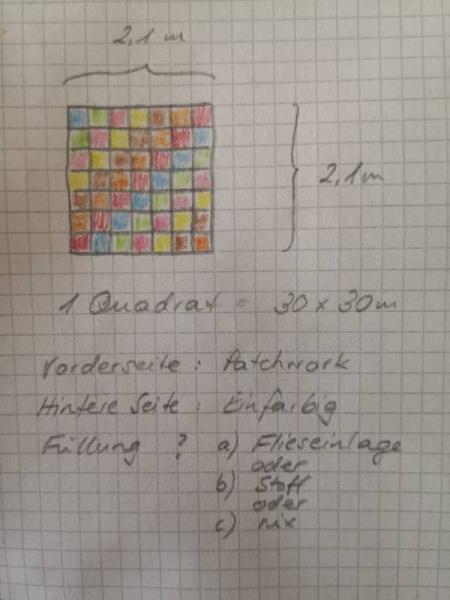 2,1 m
2,1 m
1 Quadrat = 30 x 30 m
Vorderseite : Patchwork
Hintere Seite : Einfarbig
Füllung ? a) Flieseinlage
oder
b) Stoff
oder
c) nix